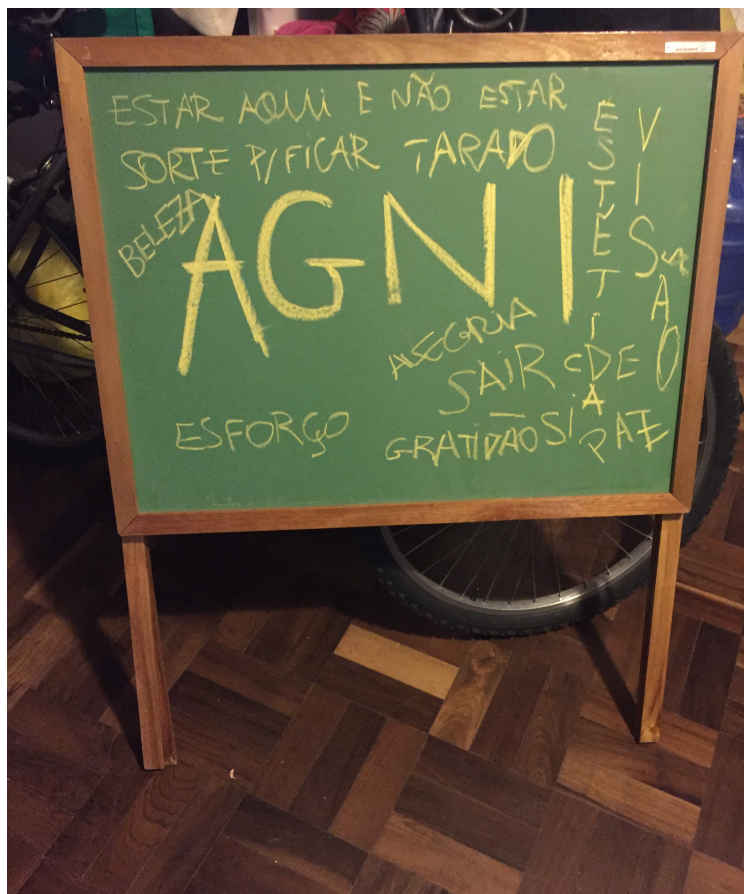 ESTAR AQUI E NÃO ESTAR
SORTE P/FICAR TARADO
BELEZA
AGNI
ESTÉTICA
VISÃO
ALEGRIA
SAIR DE SI
ESFORÇO
GRATIDÃO
PAZ